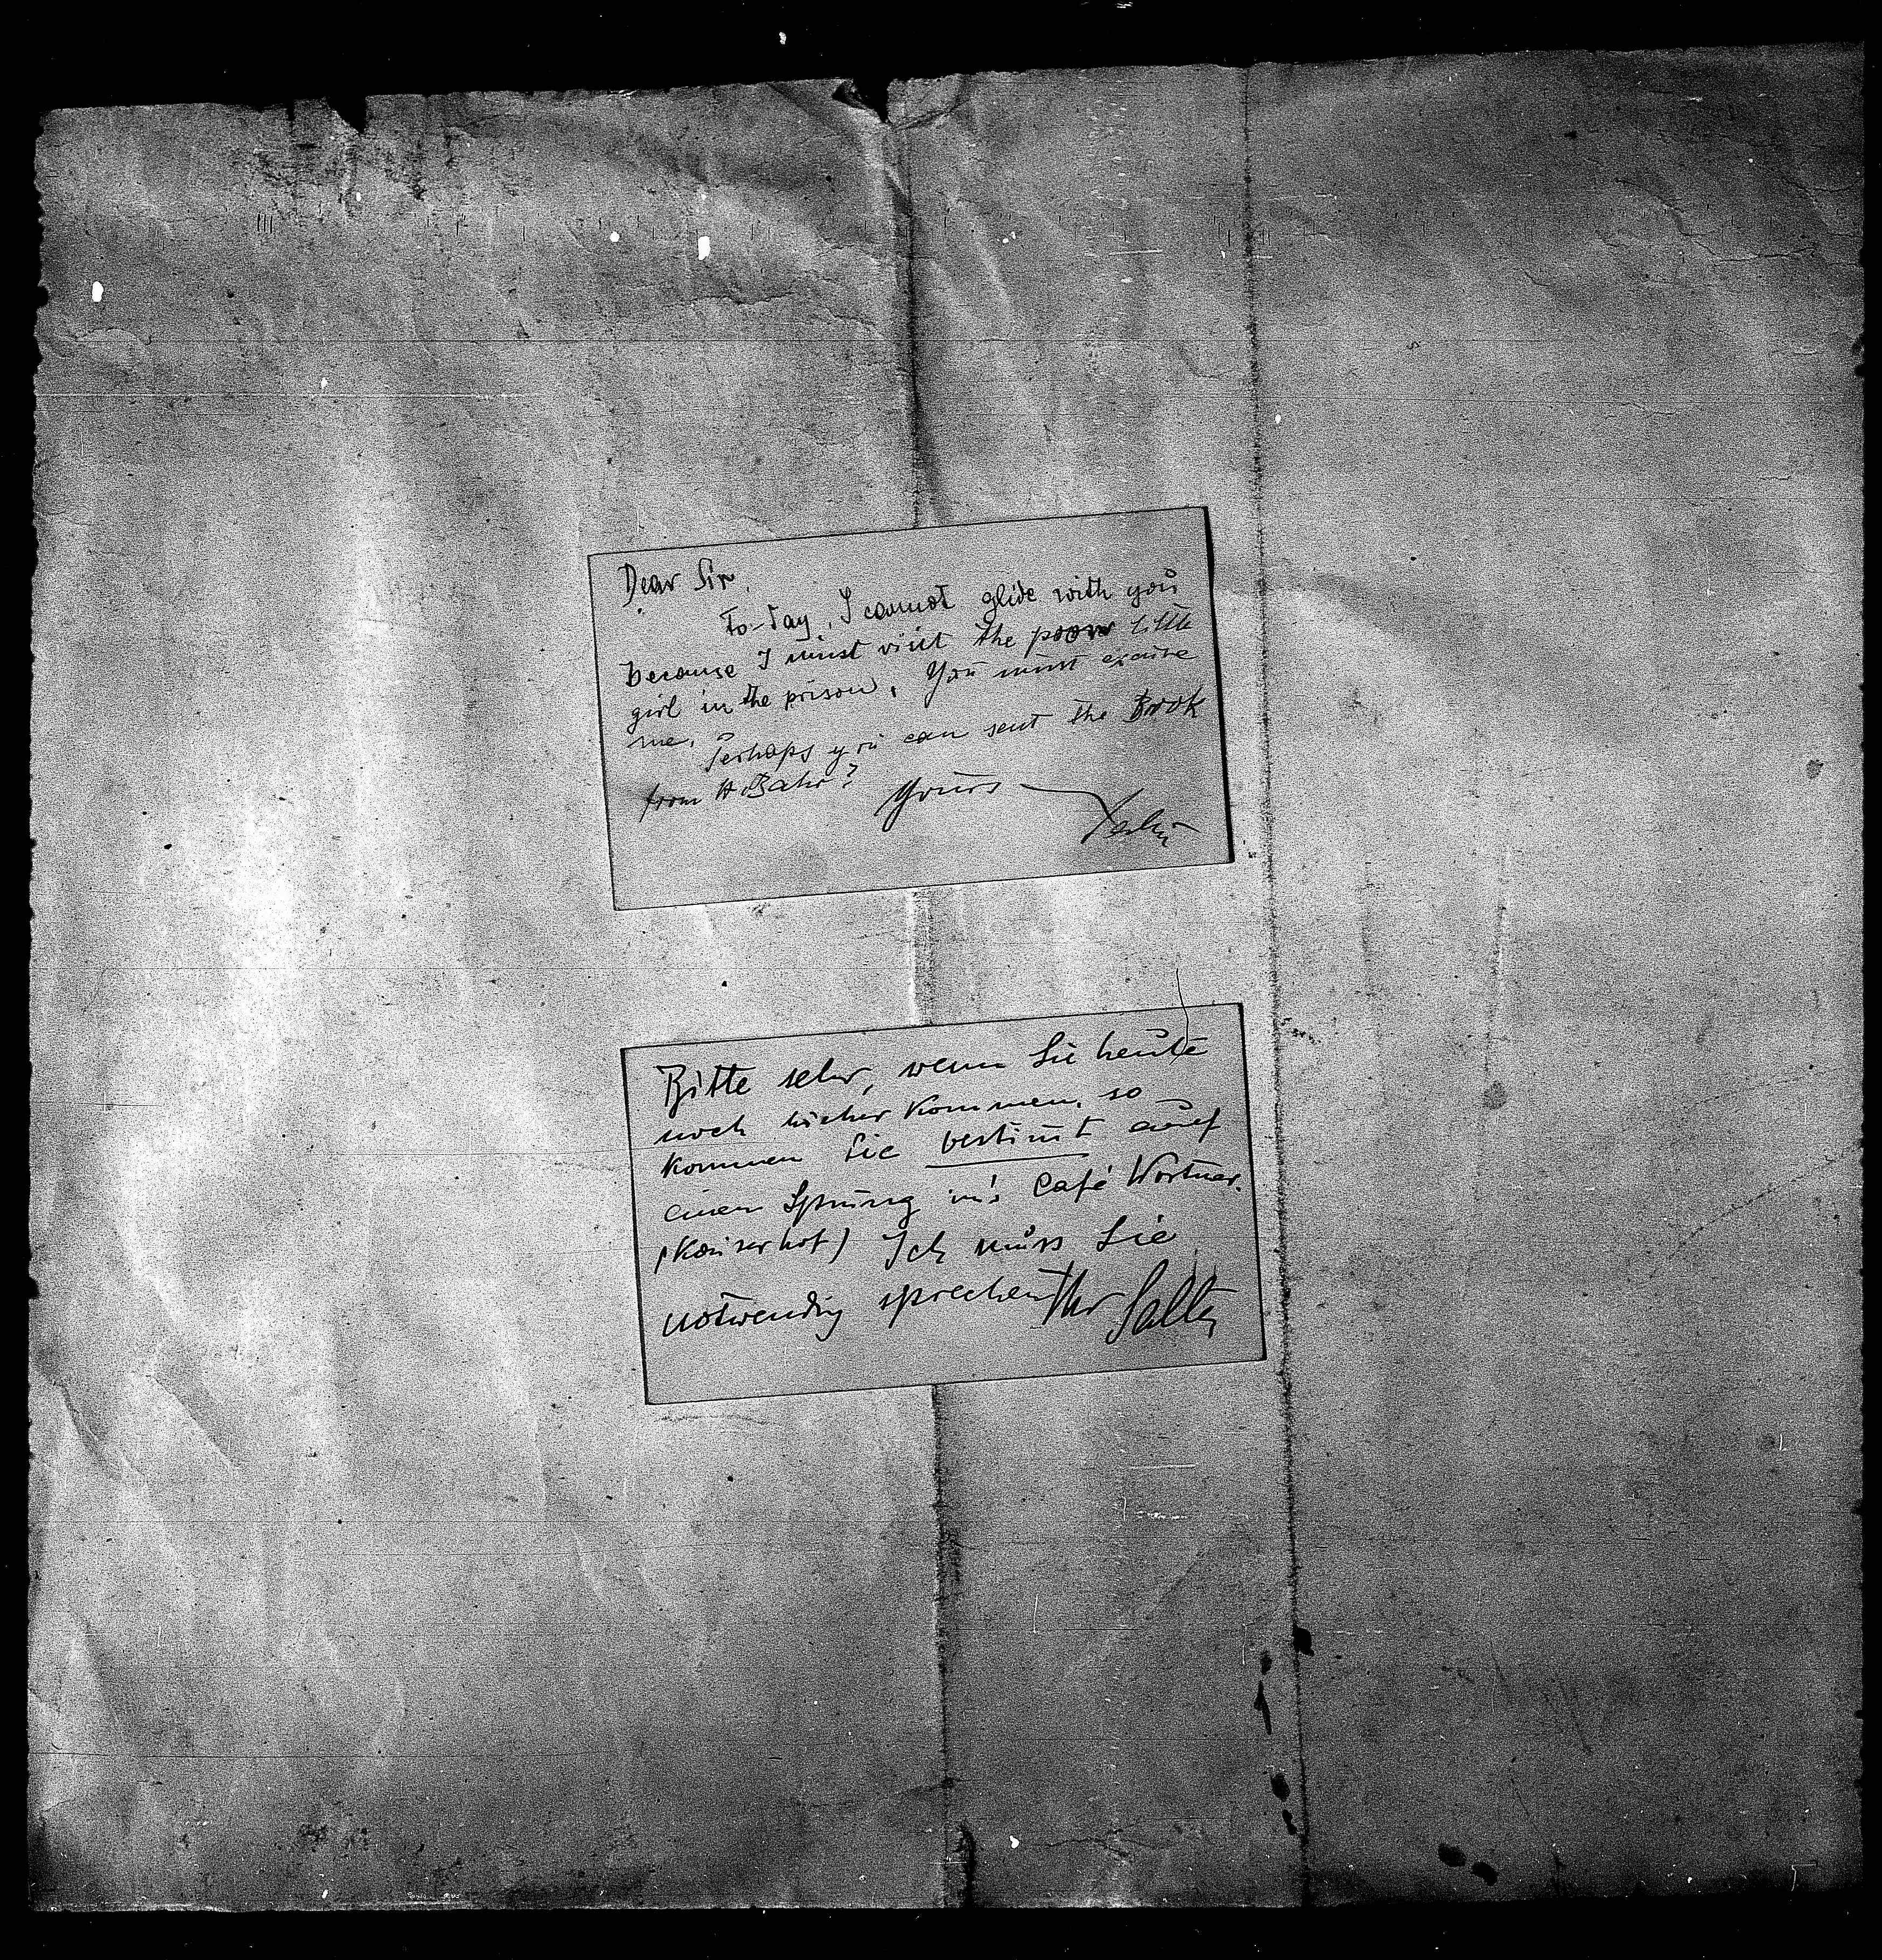 Dear Sir,
To-day, I cannot glide with you
because I must visit the poor little
girl in the prison. You must excuse
me.
Perhaps you can sent the Book
from H Bahr?
Yours
Bitte sehr, wenn Sie heute
noch hieher kommen, so
kommen Sie bestimt auf
einen Sprung in's Café Wortner.
(Kaiserhof) Ich muss Sie
notwendig sprechen Ihr Salten